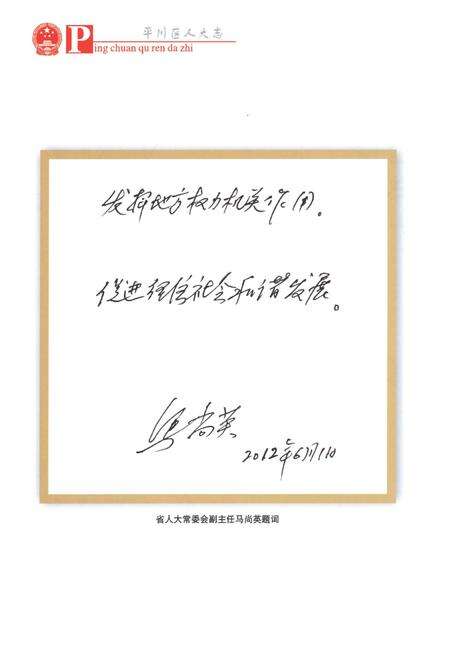 平川区人大志
Ping chuan qu ren da zhi
发挥地方权力机关作用。
促进经济社会和谐发展。
马尚英
2012年6月1日
省人大常委会副主任马尚英题词